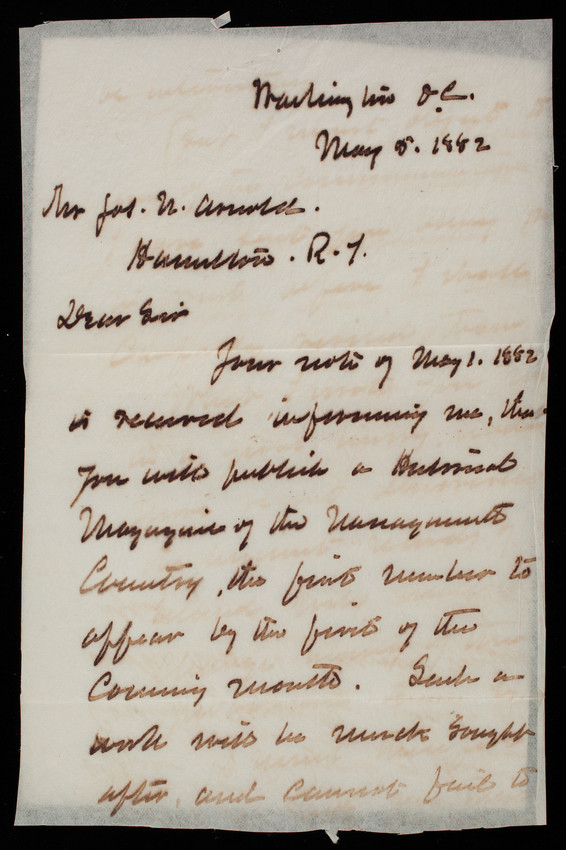 Washington D.C.
May 5. 1882
Mr Jas. N. Arnold.
Hamilton. R.I.
Dear Sir
Your note of May 1. 1882
is received informing me, that
you will publish a Historical
Magazine of the Narragansett
Country, the first number to
appear by the first of the
Coming month. Such a
work will be much sought
after, and cannot fail to